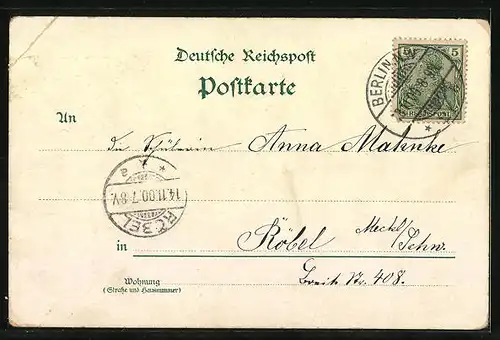 Deutsche Reichspost
Postkarte
5 5
BERLIN
An die Schülerin Anna Mahnke
14.11.00. 7-8V.
RÖBEL
in Röbel Meckl.
Schw.
Breite Str. 408.
Wohnung
(Straße und Hausnummer)